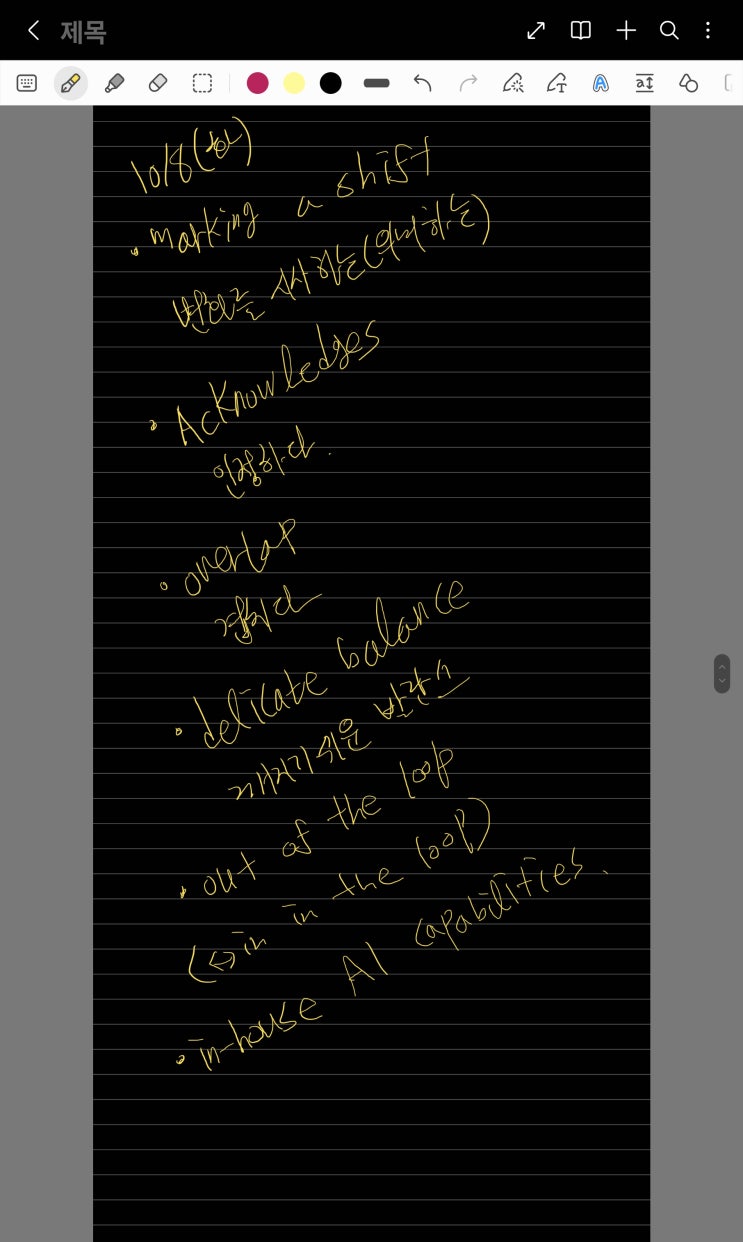 제목
10/8(화)
• marking a shift
변화를 시사하는(의미하는)
• Acknowledges
인정하다.
• overlap
겹치다
• delicate balance
깨지기 쉬운 밸런스
• out of the loop
(↔ in in the loop)
• in-house AI capabilities.